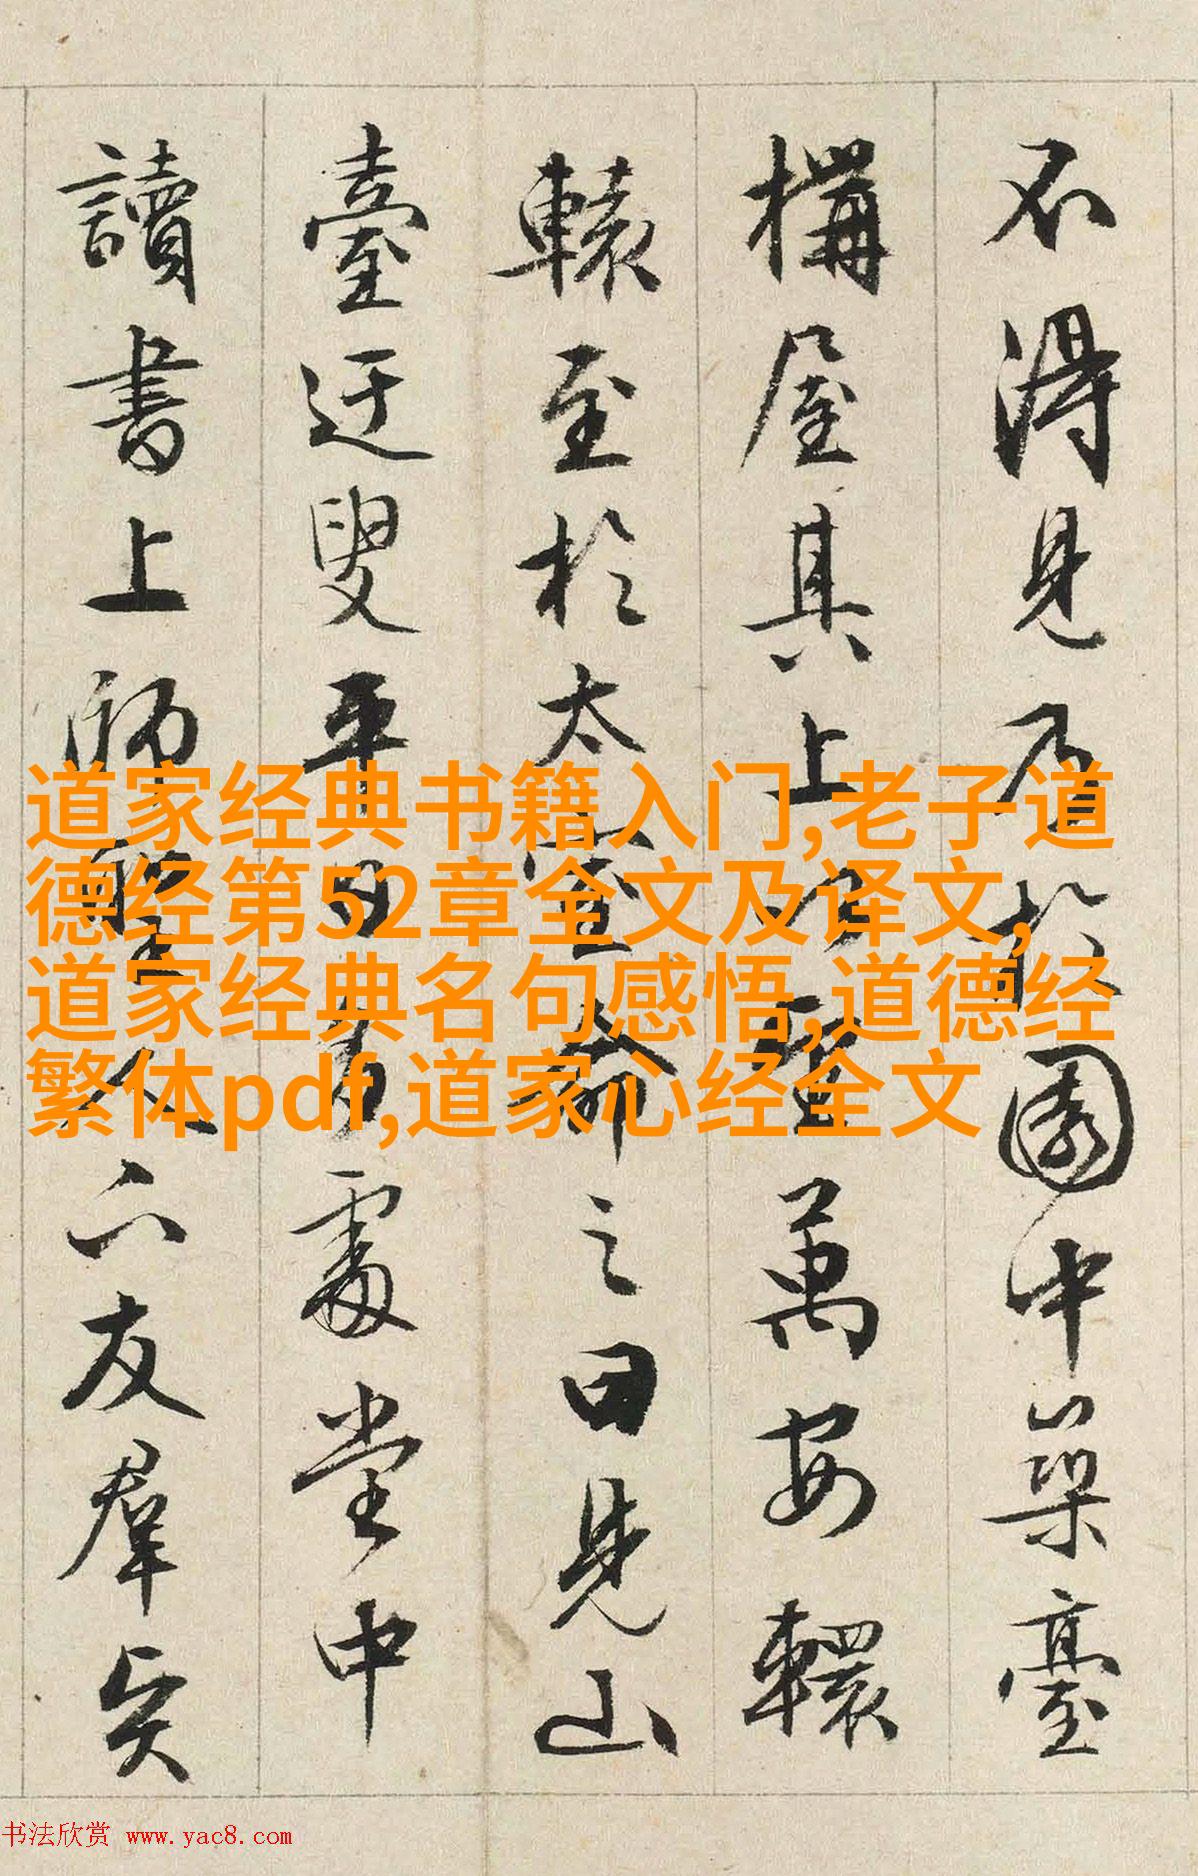 不得見乃於園中築臺
構屋其上以望萬安轘
轅至於太室命之曰見山
臺迂叟平日多處堂中
讀書上師聖人下友羣賢
道家经典书籍入门,老子道
德经第52章全文及译文,
道家经典名句感悟,道德经
繁体pdf,道家心经全文
书法欣赏 www.yac8.com